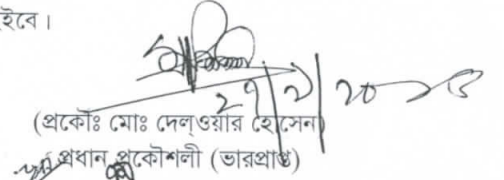 ইবে।
২৭/৯/২০
(প্রকৌঃ মোঃ দেল্ওয়ার হোসেন)
প্রধান প্রকৌশলী (ভারপ্রাপ্ত)